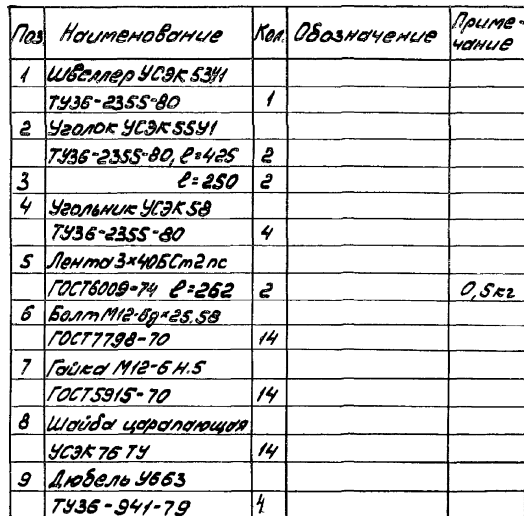 Поз. Наименование Кол. Обозначение Приме-
чание
1 Швеллер УСЭК 53У1
ТУ36-2355-80 1
2 Уголок УСЭК 55У1
ТУ36-2355-80, ℓ=425 2
3 ℓ=250 2
4 Угольник УСЭК 58
ТУ36-2355-80 4
5 Лента 3×40БСт2пс
ГОСТ6009-74 ℓ=262 2 0,5кг
6 Болт М12-6g×25.58
ГОСТ7798-70 14
7 Гайка М12-6Н.5
ГОСТ5915-70 14
8 Шайба царапающая
УСЭК 76 ТУ 14
9 Дюбель У663
ТУ36-941-79 4